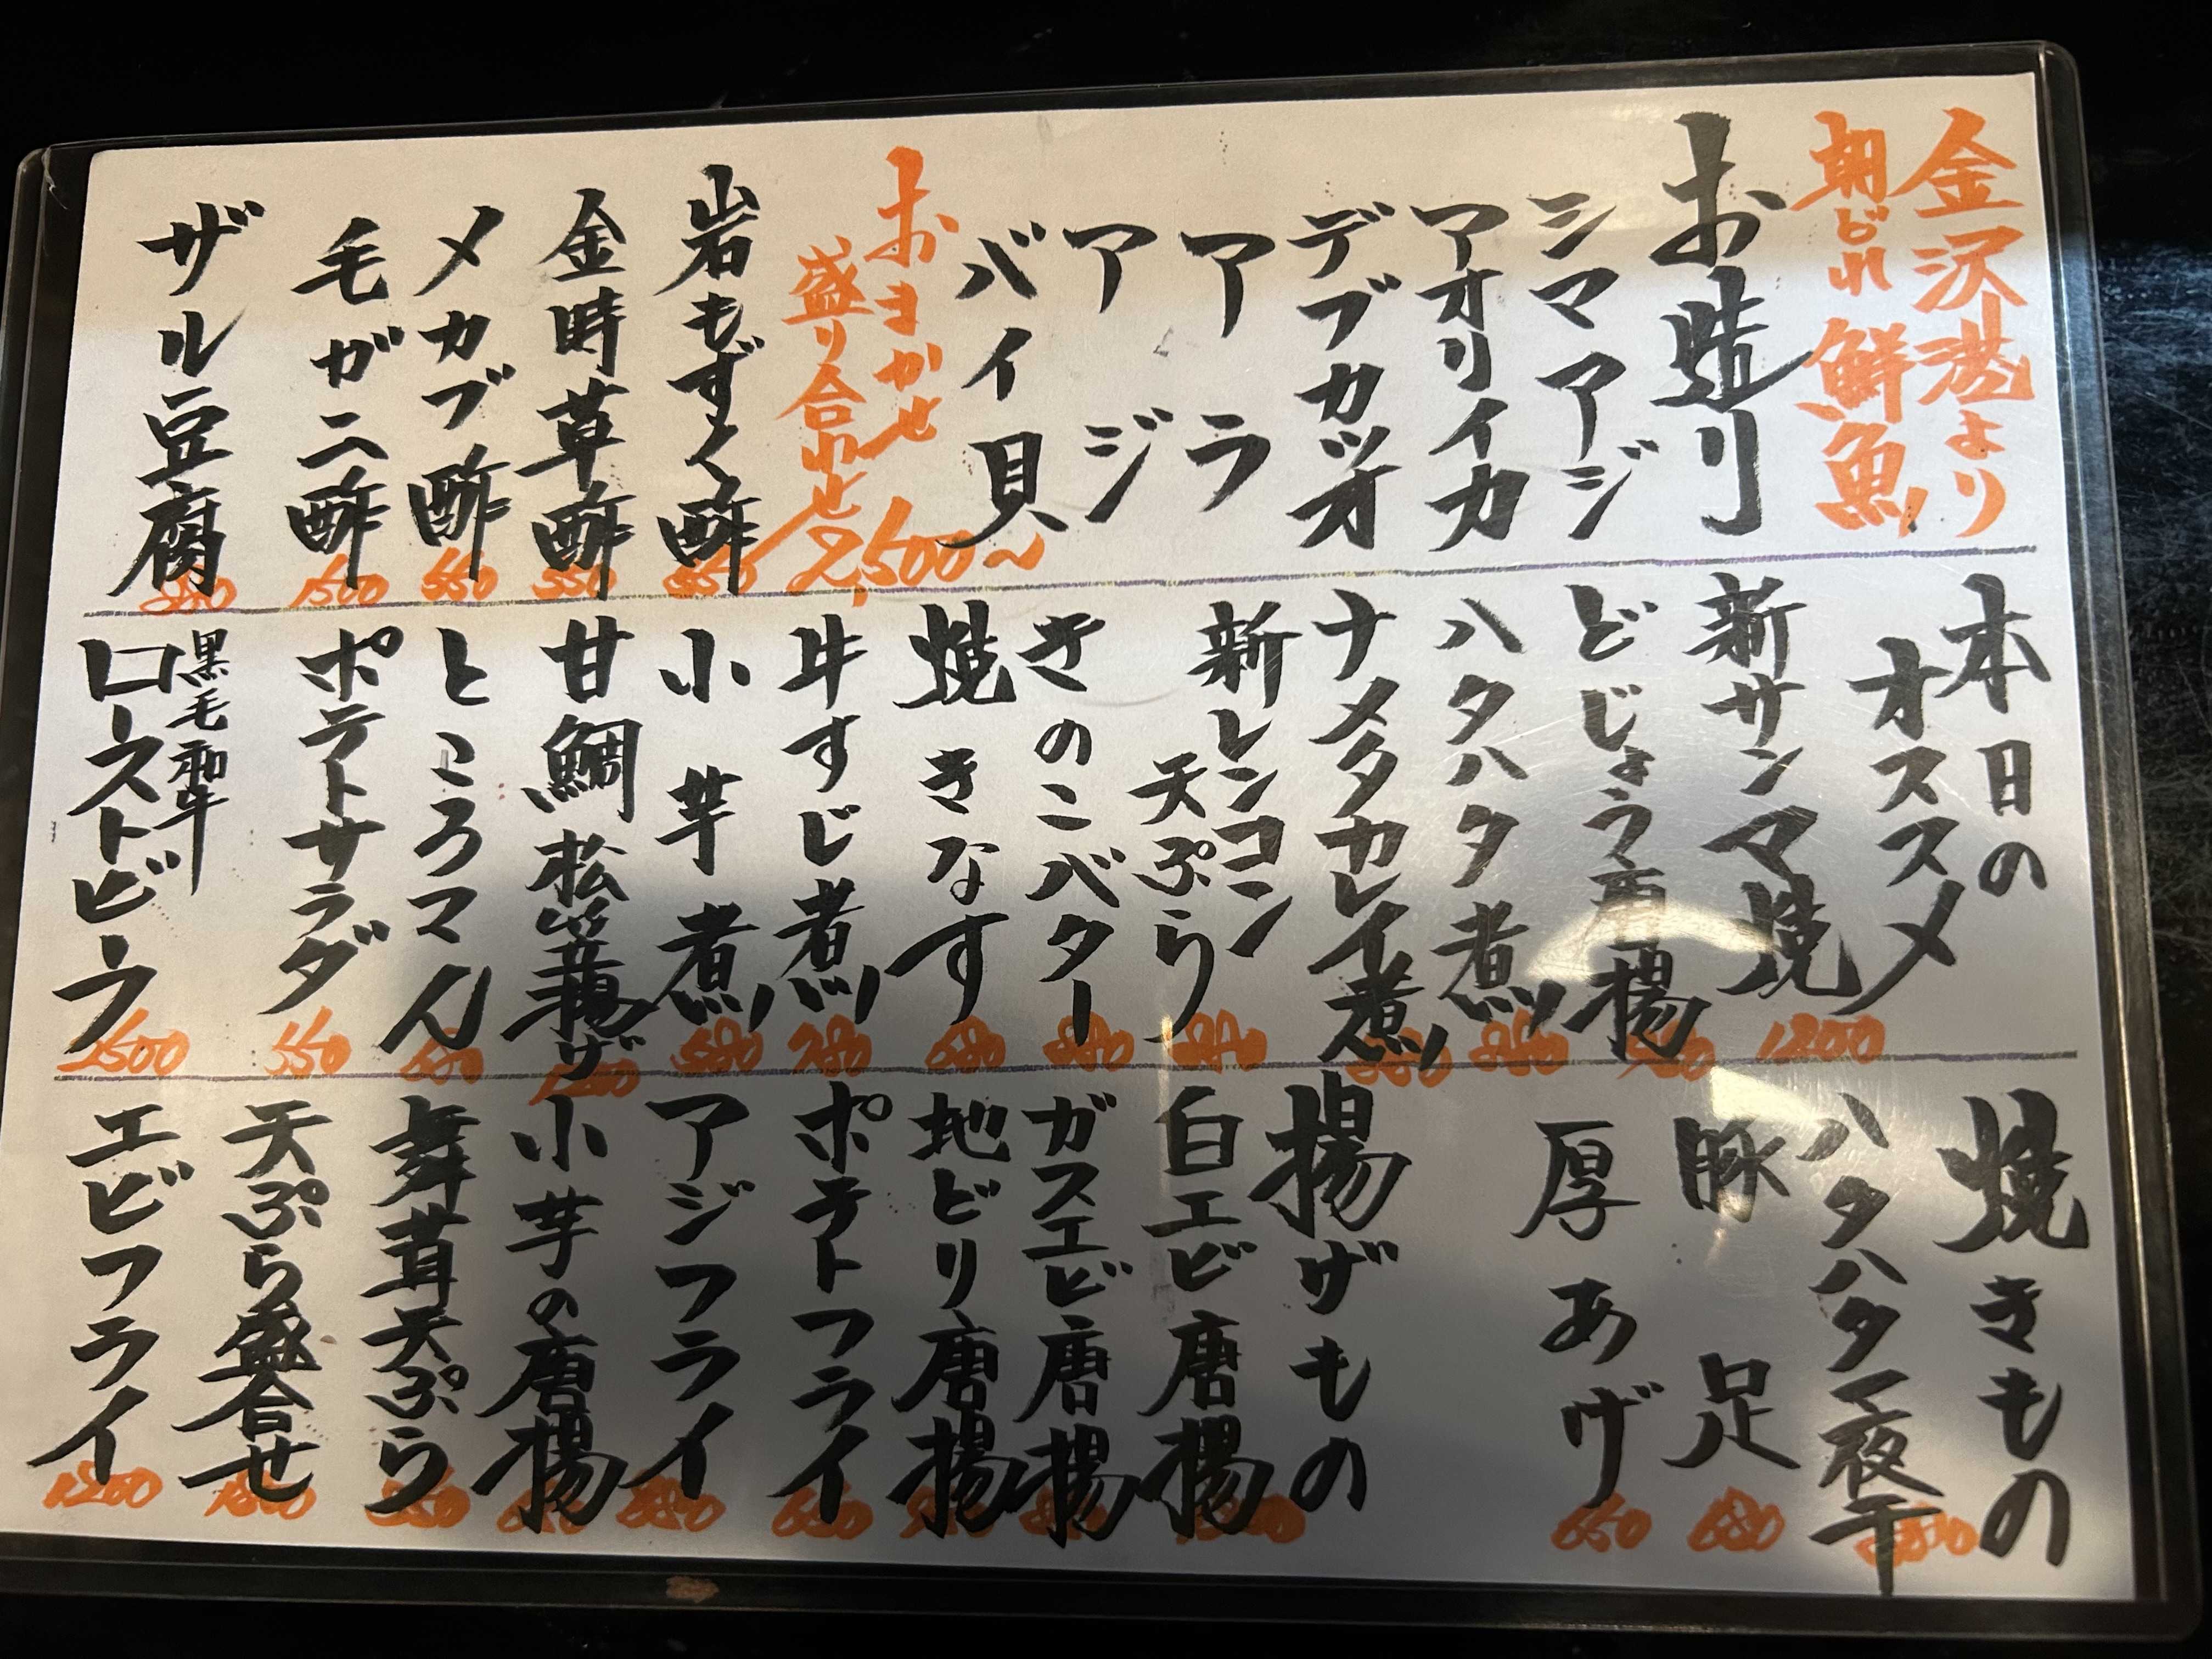 金沢港より
朝どれ 鮮魚
お造り
シマアジ
アオリイカ
デブカツオ
アラ
アジ
バイ貝
おまかせ
盛り合わせ 2,500〜
岩もずく酢 550
金時草酢 550
メカブ酢 550
毛ガニ酢 1500
ザル豆腐
本日の
オススメ
新サンマ焼 1200
どじょう唐揚
ハタハタ煮
ナメタカレイ煮
新レンコン
天ぷら
きのこバター
焼きなす 680
牛すじ煮 780
小芋煮 580
甘鯛松笠揚げ
ところマん
ポテトサラダ 550
黒毛和牛
ローストビーフ 1500
焼きもの
ハタハタ一夜干
豚足 680
厚あげ 650
揚げもの
白エビ唐揚
ガスエビ唐揚
地どり唐揚
ポテトフライ
アジフライ
小芋の唐揚
舞茸天ぷら
天ぷら盛合せ
エビフライ 1200